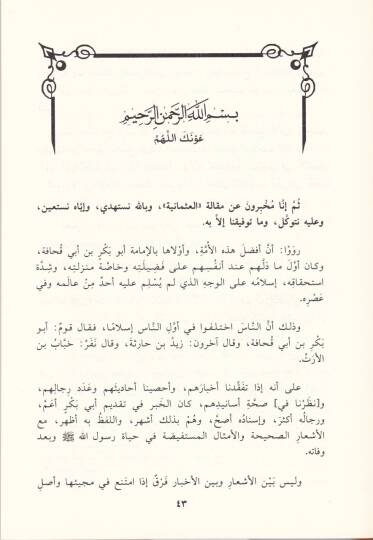 بسم الله الرحمن الرحيم
عَوْنَكَ اللَّهُمَّ
ثُمَّ إنَّا مُخْبِرونَ عن مقالة «العثمانية»، وبالله نستهدي، وإيَّاه نستعين،
وعليه نتوكَّل، وما توفيقنا إلاَّ به.
رَوَوْا: أنَّ أفضلَ هذه الأُمَّةِ، وأوْلاها بالإمامة أبو بَكْرِ بن أبي قُحافة،
وكان أوَّلَ ما دلَّهم عند أنفُسِهم على فَضِيلَتِه وخاصَّة منزلتِه، وشِدَّة
استحقاقِه، إسلامُه على الوجهِ الذي لم يُسْلِم عليه أحدٌ مِنْ عالَمه وفي
عَصْرِه.
وذلك أنَّ النَّاسَ اختلفوا في أوَّلِ النَّاسِ إسلامًا، فقال قومٌ: أبو
بَكْرِ بن أبي قُحافة، وقال آخرون: زيدُ بن حارثة، وقال نَفَرٌ: خبَّابُ بن
الأرَتّ.
على أنه إذا تَفَقَّدنا أخبارَهم، وأحصينا أحاديثَهم وعَدَد رِجالِهم،
و[نَظَرْنا في] صحَّةِ أسانيدِهم، كان الخَبر في تقديم أبي بَكْرٍ أعَمَّ،
ورجالُه أكثرَ، وإسنادُه أصحَّ، وهُمْ بذلك أشهر، واللفظُ به أظهر، مع
الأشعارِ الصحيحة والأمثال المستفيضة في حياة رسول الله ﷺ وبعد
وفاته.
وليس بَيْنَ الأشعارِ وبين الأخبار فَرْقٌ إذا امتَنع في مجيئها وأصلِ
٤٣